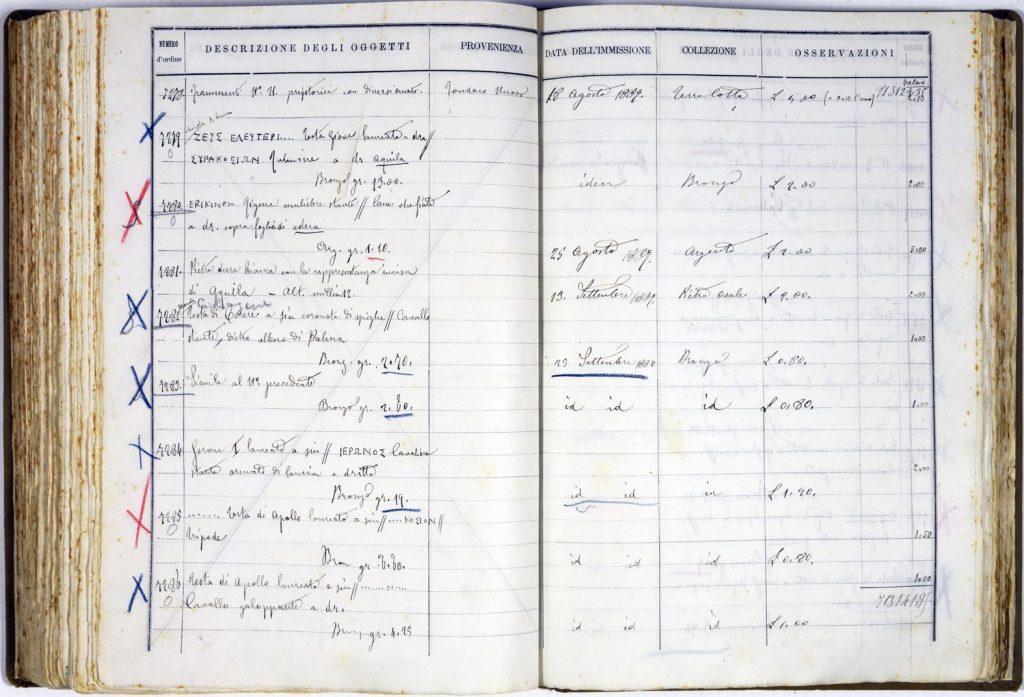 NUMERO d'ordine DESCRIZIONE DEGLI OGGETTI PROVENIENZA DATA DELL'IMMISSIONE COLLEZIONE OSSERVAZIONI
Valore
7278 Frammenti N.º 11 preistorici con 18 Agosto 1889. Terra cotta £ 4.00
7279 ΖΕΥΣ ΕΛΕΥΤΕΡΙ.... Testa Giove laureato a dra//
0 ΣΥΡΑΚΟΣΙΩΝ Fulmine a dr aquila
Bronzo gr. 13.00. idem Bronzo £ 2.00 2.00
7280 ERIKINON figura muliebre stante// Cane
0 a dr. sopra foglie di edera
Arg. gr. 1.10. 25 Agosto 1889. Argento £ 2.00 5.00
7281. Pietra dura bianca con la rappresentanza incisa
di Aquila - Alt. mill. 12. 13. Settembre 1889. Pietra £ 2.00. 2.00
7282 Testa di Cerere a sin coronata di spighe// Cavallo
stante, dietro albero di Palma 1.00
Bronz. gr. 2.70. 23 Settembre Bronzo £ 0.80.
7283. Simile al Nº precedente
Bronzo gr. 2.80. id id id £ 0.80. 1.00
7284 Gerone I laureato a sin// ΙΕΡΩΝΟΣ Cavaliere
stante armato di lancia a dritta 2.00
Bronzo gr. 19. id id id £ 1.20.
7285 ........ Testa di Apollo laureato a sin//....ΚΟΣΙΩΝ//
0 tripode 1.50
Bron gr. id id id £ 0.80.
7286 Testa di Apollo laureato a sin//.......... 1.00
0 Cavallo galoppante a dr.
Bron, gr. 4.25 id id id £ 1.00